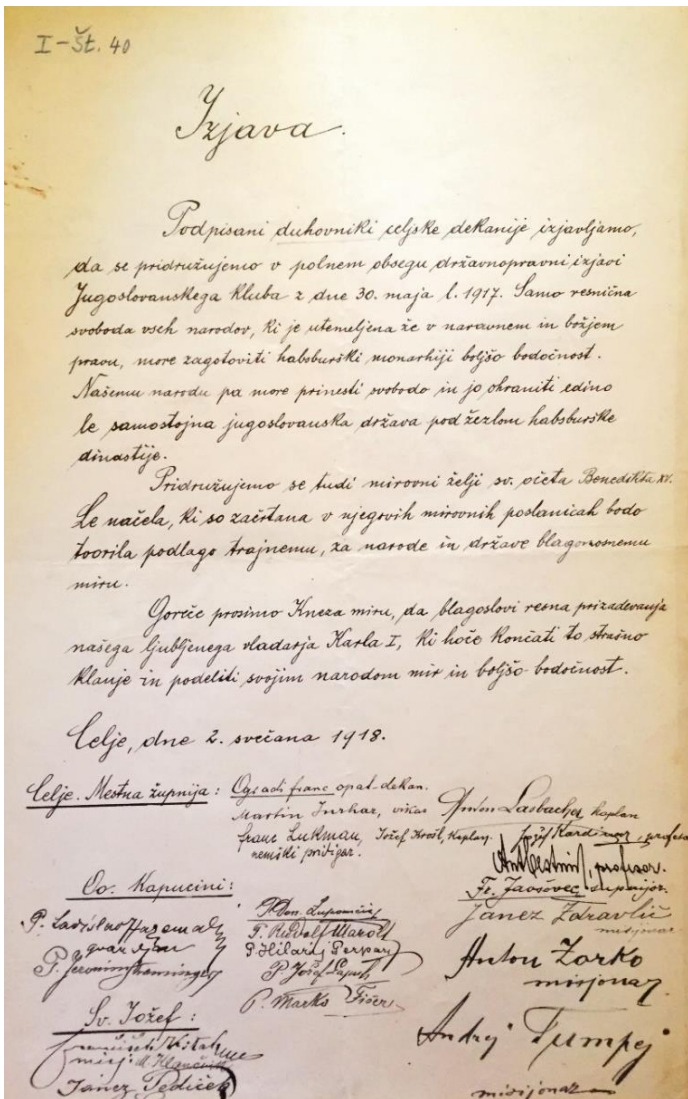 I-Št. 40
Izjava.
Podpisani duhovniki celjske dekanije izjavljamo,
da se pridružujemo v polnem obsegu državnopravni izjavi
Jugoslovanskega kluba z dne 30. maja l. 1917. Samo resnična
svoboda vseh narodov, ki je utemeljena že v naravnem in božjem
pravu, more zagotoviti habsburški monarhiji boljšo bodočnost.
Našemu narodu pa more prinesti svobodo in jo ohraniti edino
le samostojna jugoslovanska država pod žezlom habsburške
dinastije.
Pridružujemo se tudi mirovni želji sv. očeta Benedikta XV.
Le načela, ki so začrtana v njegovih mirovnih poslanicah bodo
tvorila podlago trajnemu, za narode in države blagonosnemu
miru.
Goreče prosimo Kneza miru, da blagoslovi resna prizadevanja
našega ljubljenega vladarja Karla I, ki hoče končati to strašno
klanje in podeliti svojim narodom mir in boljšo bodočnost.
Celje, dne 2. svečana 1918.
Celje. Mestna župnija: Ogradi franc opat-dekan.
Martin Jurhar, vikar Anton Lasbacher, kaplan
franc Lukman, Jožef Krošl, kaplan. Jožef Kardinar, profesor
nemški pridigar.
profesor.
Oo. Kapucini: Fr. superijor.
P. Ladislav Janez Zdravlič
gvardijan P. Rudolf misijonar
P. P. Hilarij
P. Jožef Anton Žorko
misjonar
P. Marko Fišer
Sv. Jožef:
Andrej Tumpej
misij.
Janez Pediček
misijonar